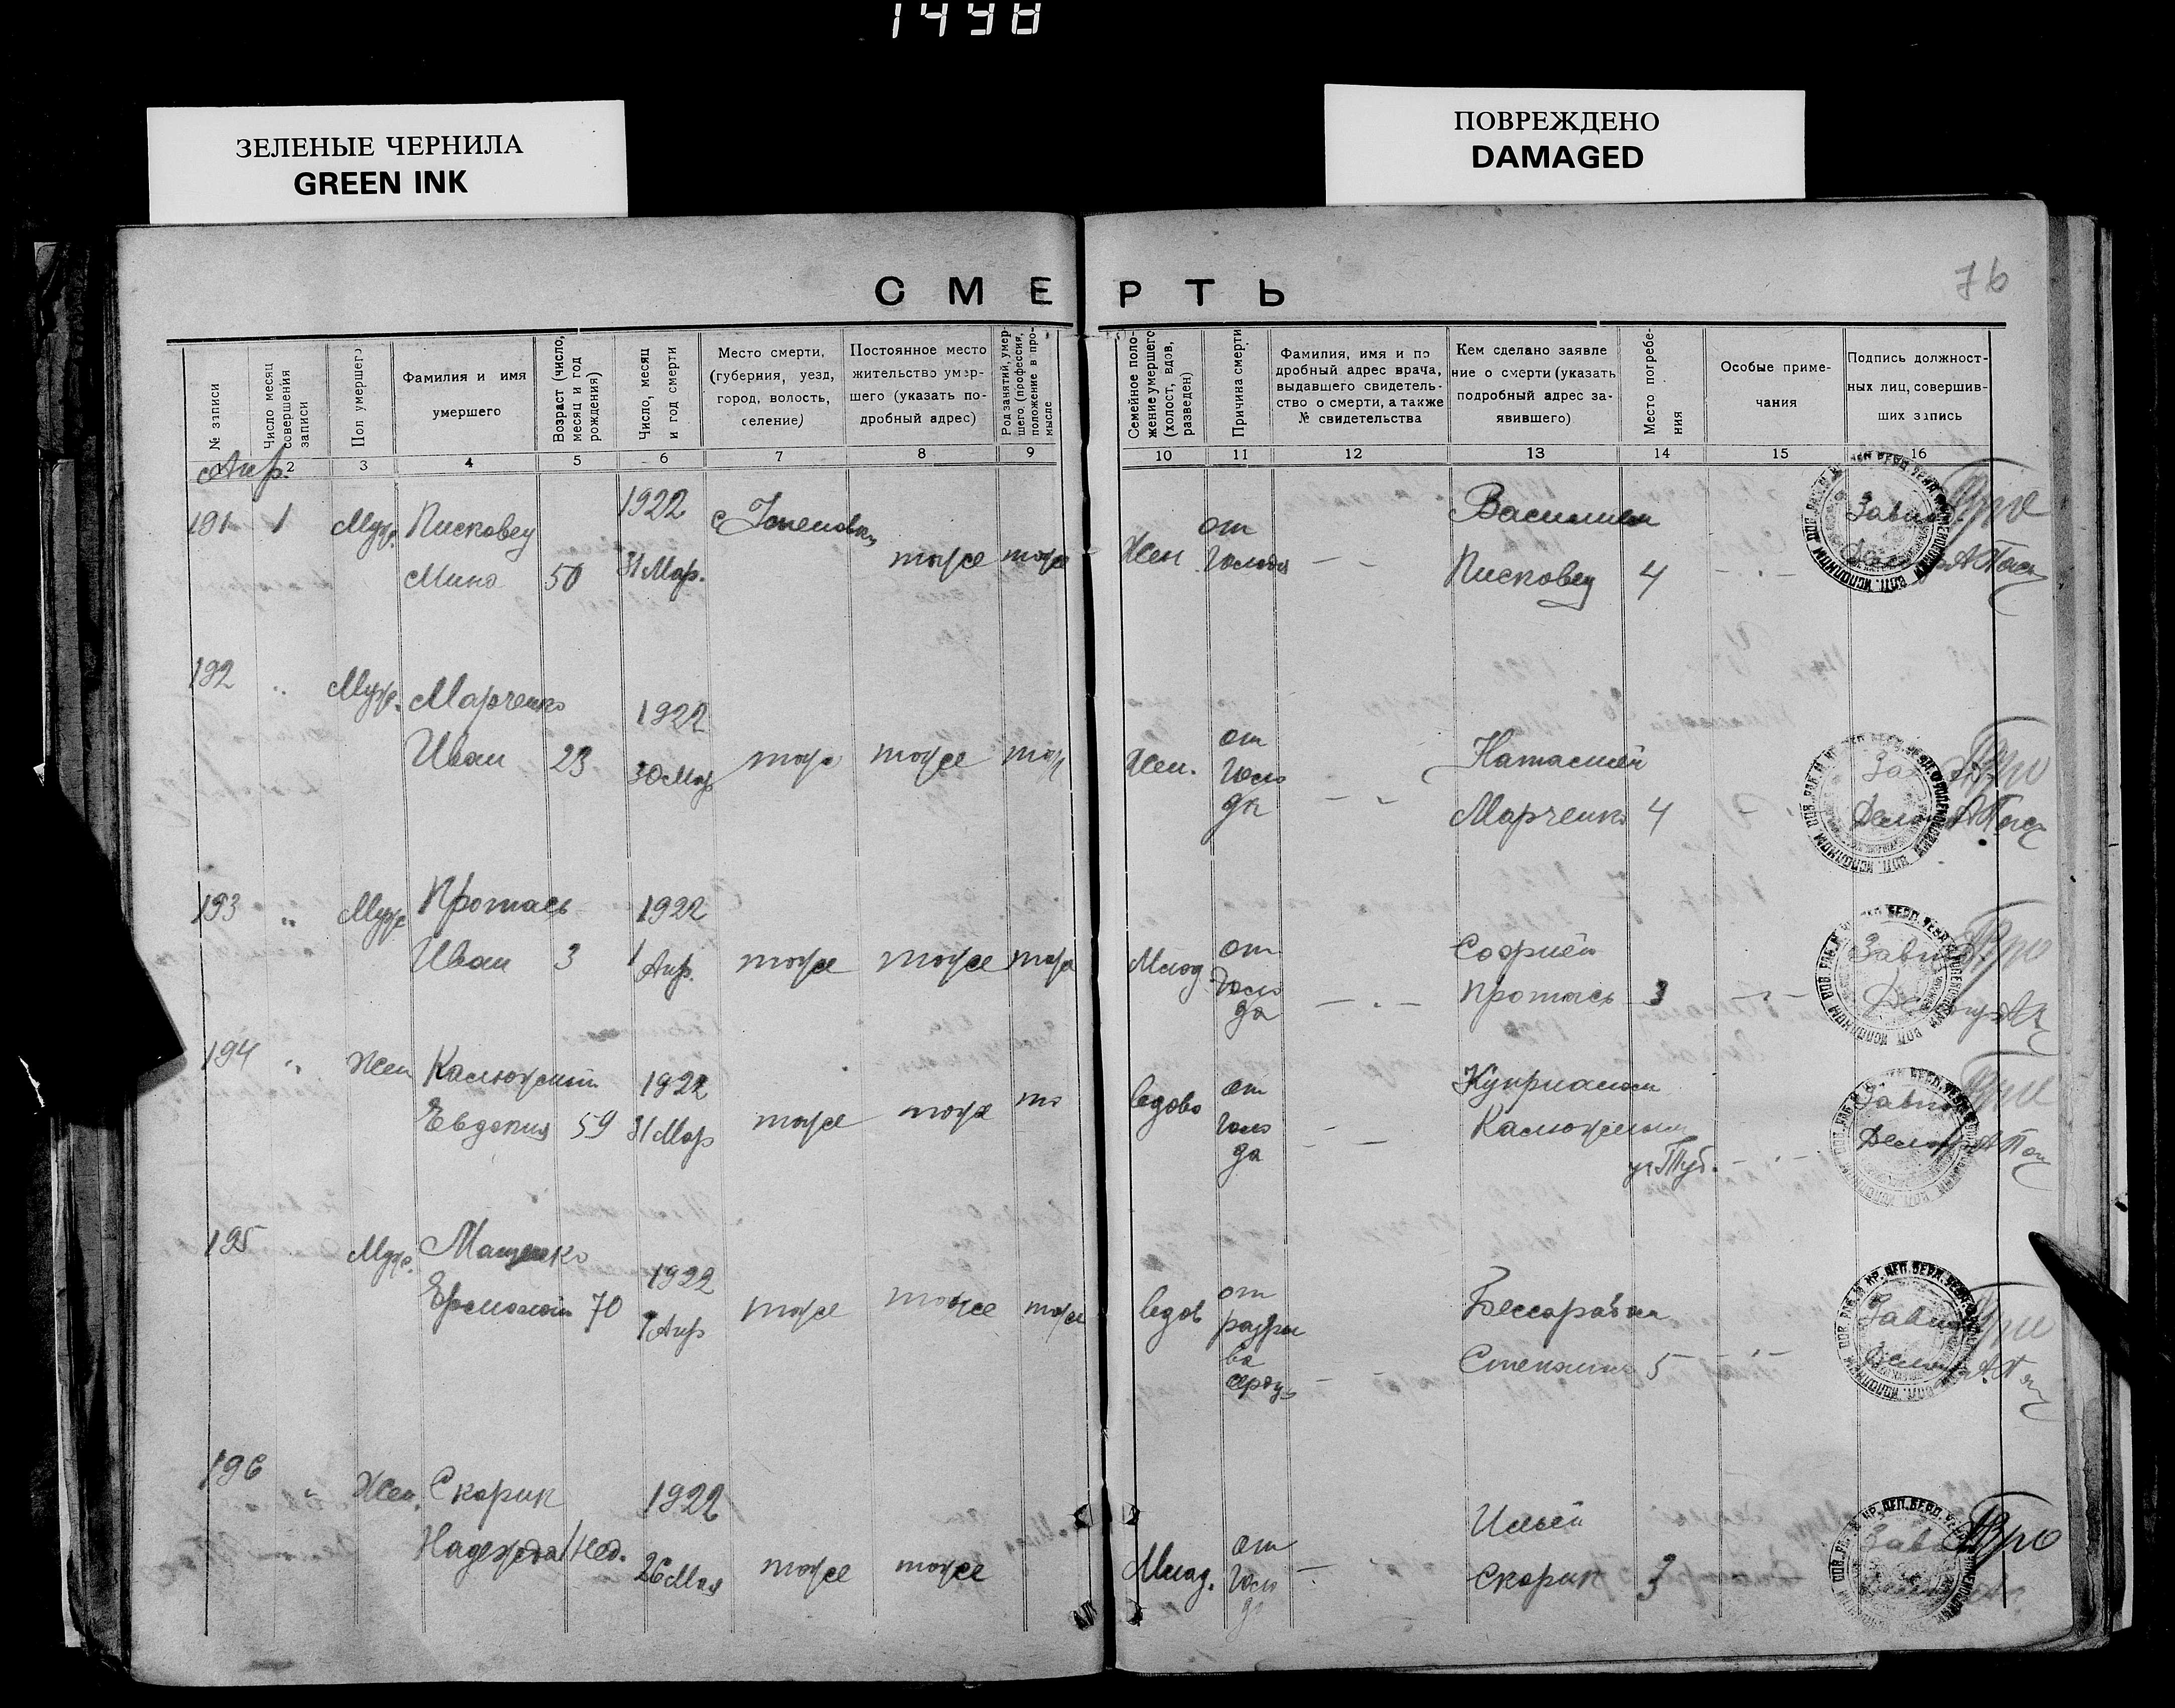 1498
ЗЕЛЕНЫЕ ЧЕРНИЛА
GREEN INK
ПОВРЕЖДЕНО
DAMAGED
76
СМЕРТЬ
№ записи
Число месяц совершения записи
Пол умершего
Фамилия и имя умершего
Возраст (число, месяц и год рождения)
Число, месяц и год смерти
Место смерти, (губерния, уезд, город, волость, селение)
Постоянное место жительство умершего (указать подробный адрес)
Род занятий, умершего, (профессия, положение в промысле
Семейное положение умершего (холост, вдов, разведен)
Причина смерти
Фамилия, имя и подробный адрес врача, выдавшего свидетельство о смерти, а также № свидетельства
Кем сделано заявление о смерти (указать подробный адрес заявившего)
Место погребения
Особые примечания
Подпись должностных лиц, совершивших запись
2 3 4 5 6 7 8 9 10 11 12 13 14 15 16
Апр.
191 1 Муж. Писковец 1922 с. от Василием
Мина 50 31 Мар. тоже тоже Жен голода Писковец 4
192 " Муж. Марченко 1922 от
Иван 23 30 Мар тоже тоже тож Жен. голо Наталией
да Марченко 4
193 " Муж Протась 1922 от Софией
Иван 3 1 Апр. тоже тоже тоже Млад. голо Протась 3
да
194 " Жен Калюжный 1922 от Куприаном
Евдокия 59 31 Мар тоже тоже то вдова голо Калюжным
да
195 Муж. Мащенко 1922 от
Ермолай 70 1 Апр тоже тоже тоже вдов разры Бессараб
ва Степаном 5
сердца
196 " Жен. Скорик 1922 Ильей
Надежда 1 нед. 26 Мая тоже тоже Млад. от голо Скорик 3
да